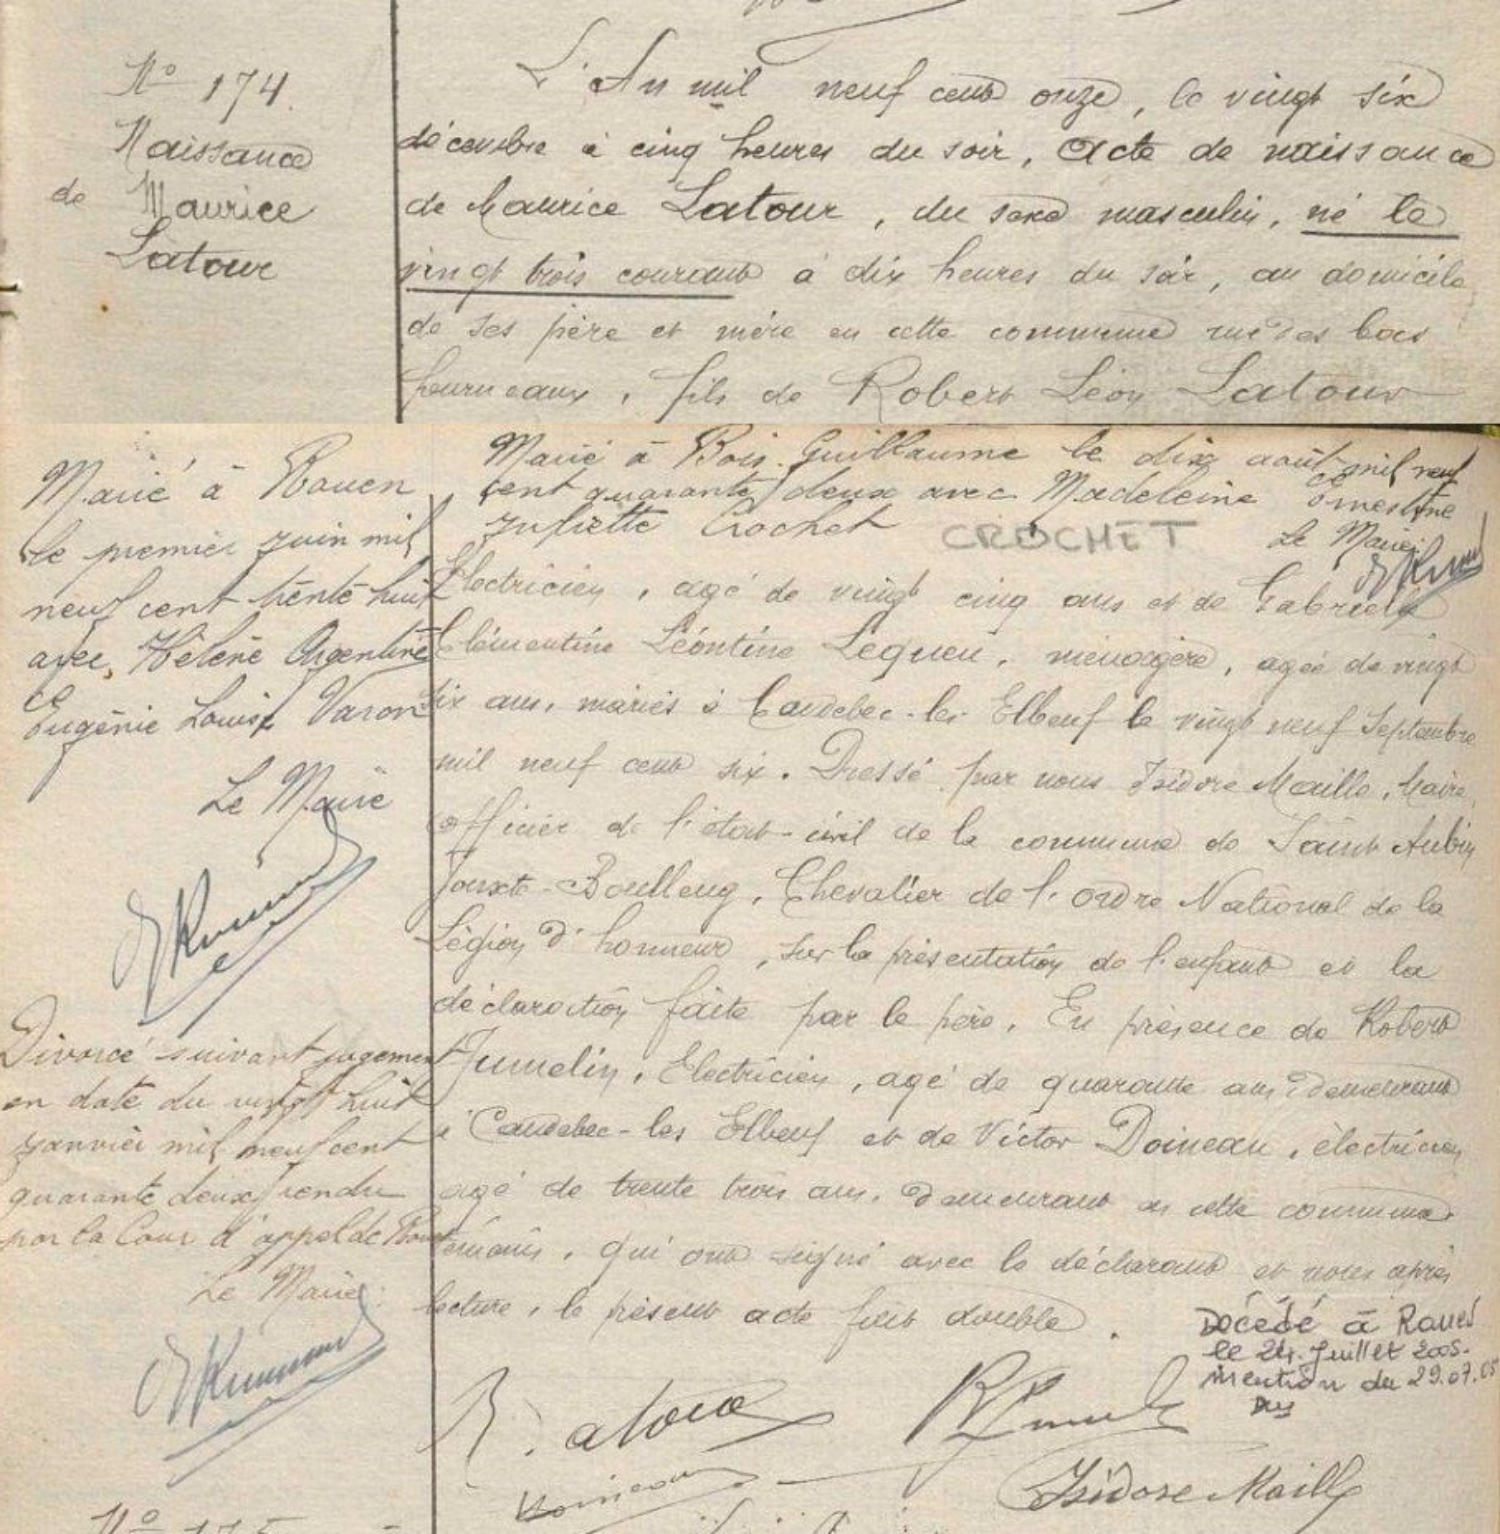 N° 174.
Naissance
de Maurice
Latour
L'An mil neuf cent onze, le vingt six
décembre à cinq heures du soir, Acte de naissance
de Maurice Latour, du sexe masculin, né le
vingt trois courant à dix heures du soir, au domicile
de ses père et mère en cette commune rue des
fourneaux, fils de Robert Léon Latour
Marié à Rouen
le premier juin mil
neuf cent trente huit
avec Hélène Argentine
Eugénie Louise Varon
Le Maire
Divorcé suivant jugement
en date du vingt huit
janvier mil neuf cent
quarante deux rendu
par la Cour d'appel de Rouen
Le Maire
Marié à Bois Guillaume le dix août mil neuf
cent quarante deux avec Madeleine Ernestine
Juliette Crochet CROCHET Le Maire
Electricien, agé de vingt cinq ans et de Gabrielle
Clémentine Léontine Lequeu, ménagère, agée de vingt
six ans, mariés à Caudebec-les-Elbeuf le vingt neuf Septembre
mil neuf cent six. Dressé par nous Isidore Maille, Maire,
officier de l'état-civil de la commune de Saint Aubin
Jouxte-Boulleng, Chevalier de l'ordre National de la
Légion d'honneur, sur la présentation de l'enfant et la
déclaration faite par le père. En présence de Robert
Jumelin, Electricien, agé de quarante ans demeurant
à Caudebec-les Elbeuf et de Victor Doineau, électricien
agé de trente trois ans, demeurant en cette commune
témoins, qui ont signé avec le déclarant et nous après
lecture, le présent acte fait double.
Décédé à Rouen
le 24 Juillet 2005.
mention du 29.07.05
R. Latour
Doineau
Isidore Maille
N° 175